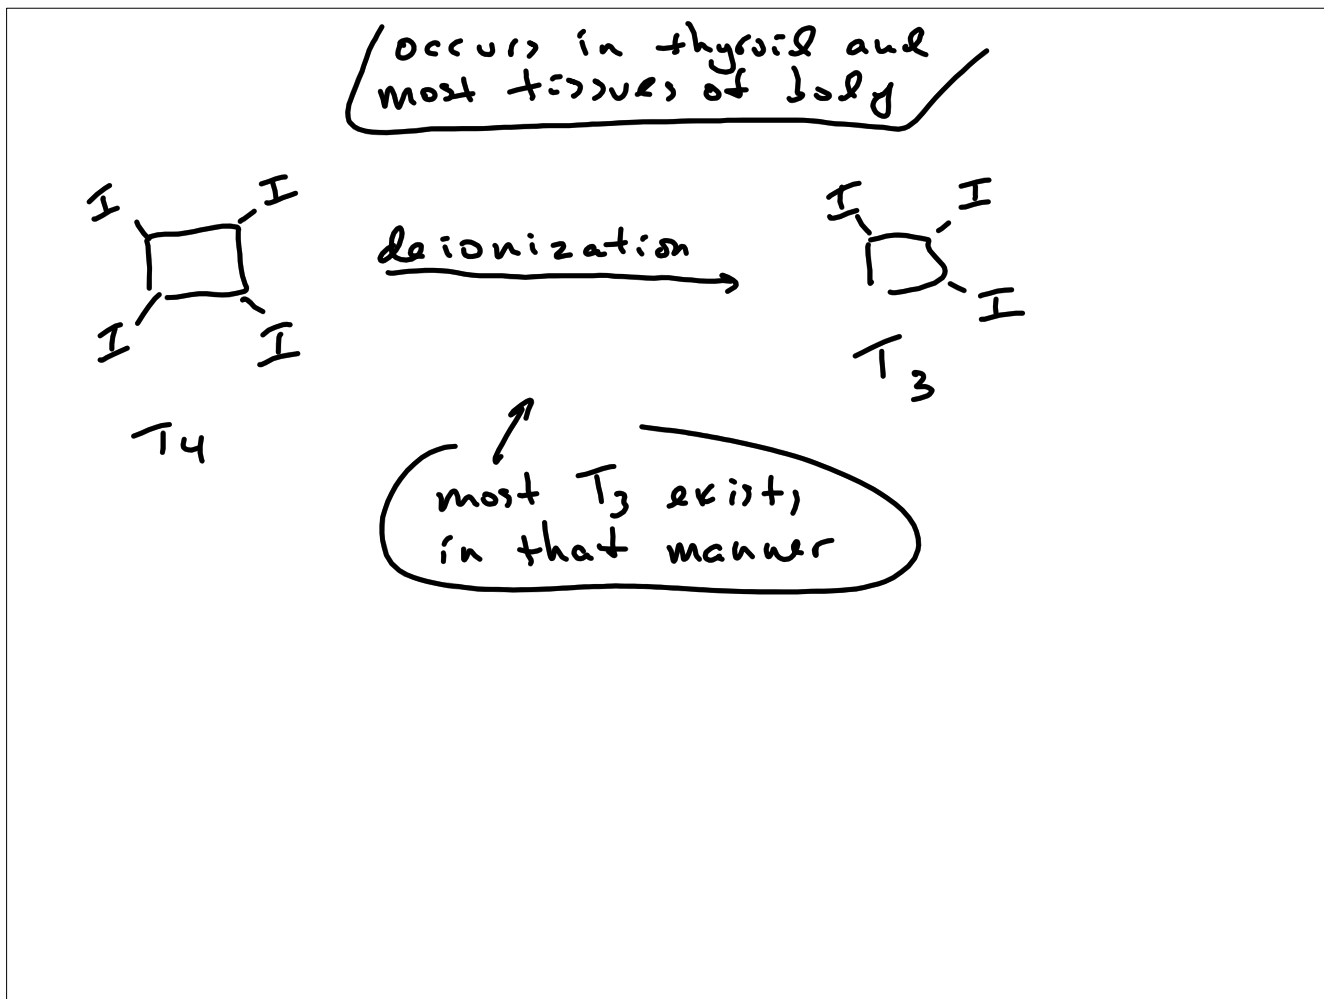 occurs in thyroid and
most tissues of body
I I
I I
deionization
I I
I
T4
T3
most T3 exists
in that manner